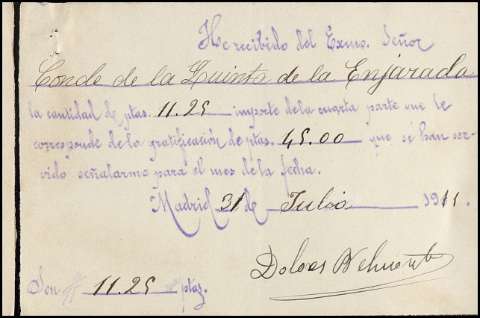 He recibido del Exmo. Señor
Conde de la Quinta de la Enjarada
la cantidad de ptas. 11.25 importe de la cuarta parte que le
corresponde de la gratificación de ptas. 45.00 que se han ser-
vido señalarme para el mes de la fecha.
Madrid 31 de Julio 1911.
Dolores
Son 11.25 ptas.